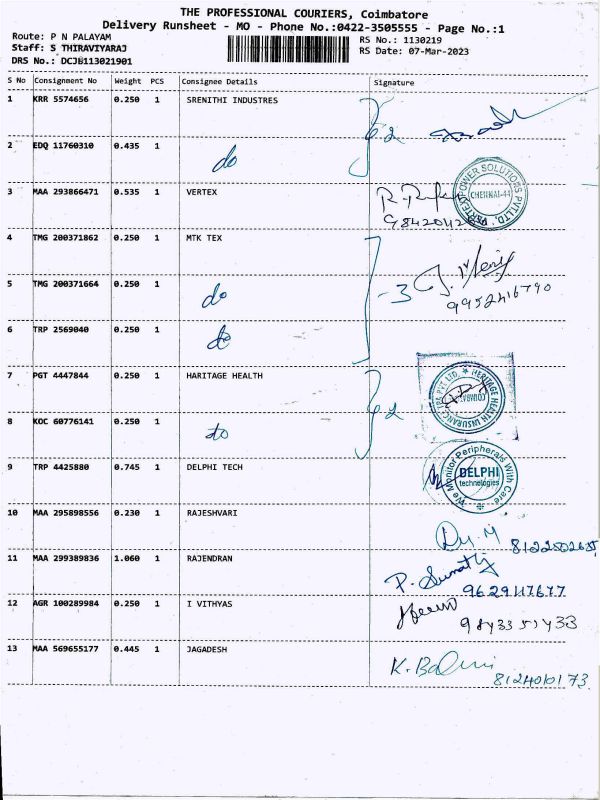 THE PROFESSIONAL COURIERS, Coimbatore
Delivery Runsheet - MO - Phone No.:0422-3505555 - Page No.:1
Route: P N PALAYAM
RS No.: 1130219
Staff: S THIRAVIYARAJ
RS Date: 07-Mar-2023
DRS No.: DCJB113021901
S No Consignment No Weight PCS Consignee Details Signature
1 KRR 5574656 0.250 1 SRENITHI INDUSTRES
2 EDQ 11760310 0.435 1 do
2
3 MAA 293866471 0.535 1 VERTEX
VERTEX POWER SOLUTIONS PVT LTD.
CHENNAI-44
4 TMG 200371862 0.250 1 MTK TEX
5 TMG 200371664 0.250 1 do
-3
9952416790
6 TRP 2569040 0.250 1 do
7 PGT 4447844 0.250 1 HARITAGE HEALTH
HERITAGE HEALTH INSURANCE TPA PVT. LTD.
8 KOC 60776141 0.250 1 do
2
9 TRP 4425880 0.745 1 DELPHI TECH
We Monitor Peripherals With Care
DELPHI
technologies
10 MAA 295898556 0.230 1 RAJESHVARI
11 MAA 299389836 1.060 1 RAJENDRAN
12 AGR 100289984 0.250 1 I VITHYAS
13 MAA 569655177 0.445 1 JAGADESH